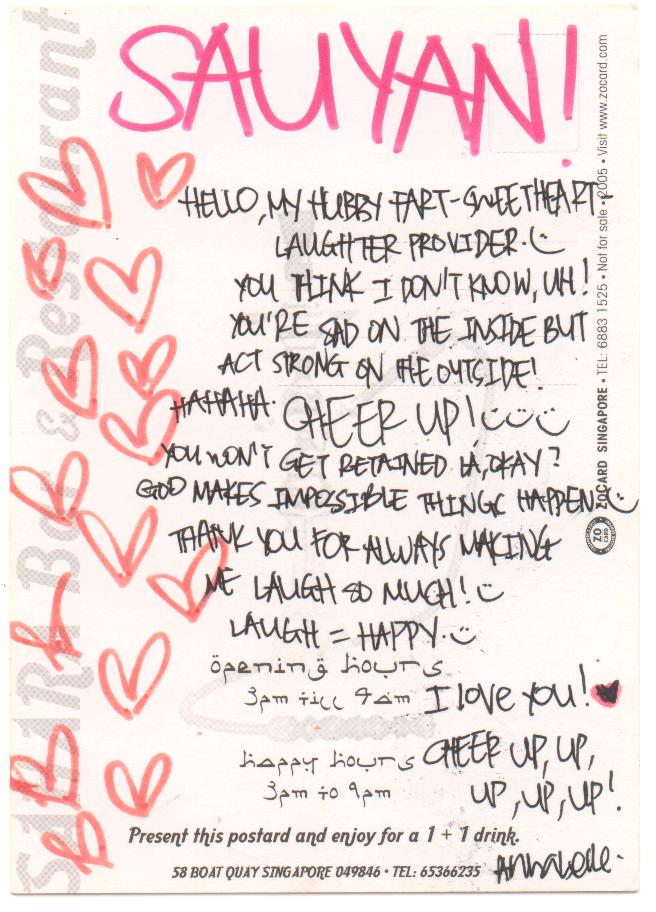 SAUYAN!
HELLO, MY HUBBY FART-SWEETHEART,
LAUGHTER PROVIDER.
YOU THINK I DON'T KNOW, UH!
YOU'RE SAD ON THE INSIDE BUT
ACT STRONG ON THE OUTSIDE!
HAHAHA. CHEER UP!
YOU WON'T GET RETAINED LA, OKAY?
GOD MAKES IMPOSSIBLE THINGS HAPPEN
THANK YOU FOR ALWAYS MAKING
ME LAUGH SO MUCH!
LAUGH = HAPPY.
opening hours
3pm till 4am
I love you!
happy hours
3pm to 9pm
CHEER UP, UP,
UP, UP, UP!
Annabelle.
Present this postard and enjoy for a 1 + 1 drink.
58 BOAT QUAY SINGAPORE 049846 • TEL: 65366235
SAHARA Bar & Restaurant
ZOCARD SINGAPORE • TEL: 6883 1525 • Not for sale • 2005 • Visit www.zocard.com
ZO
CARD